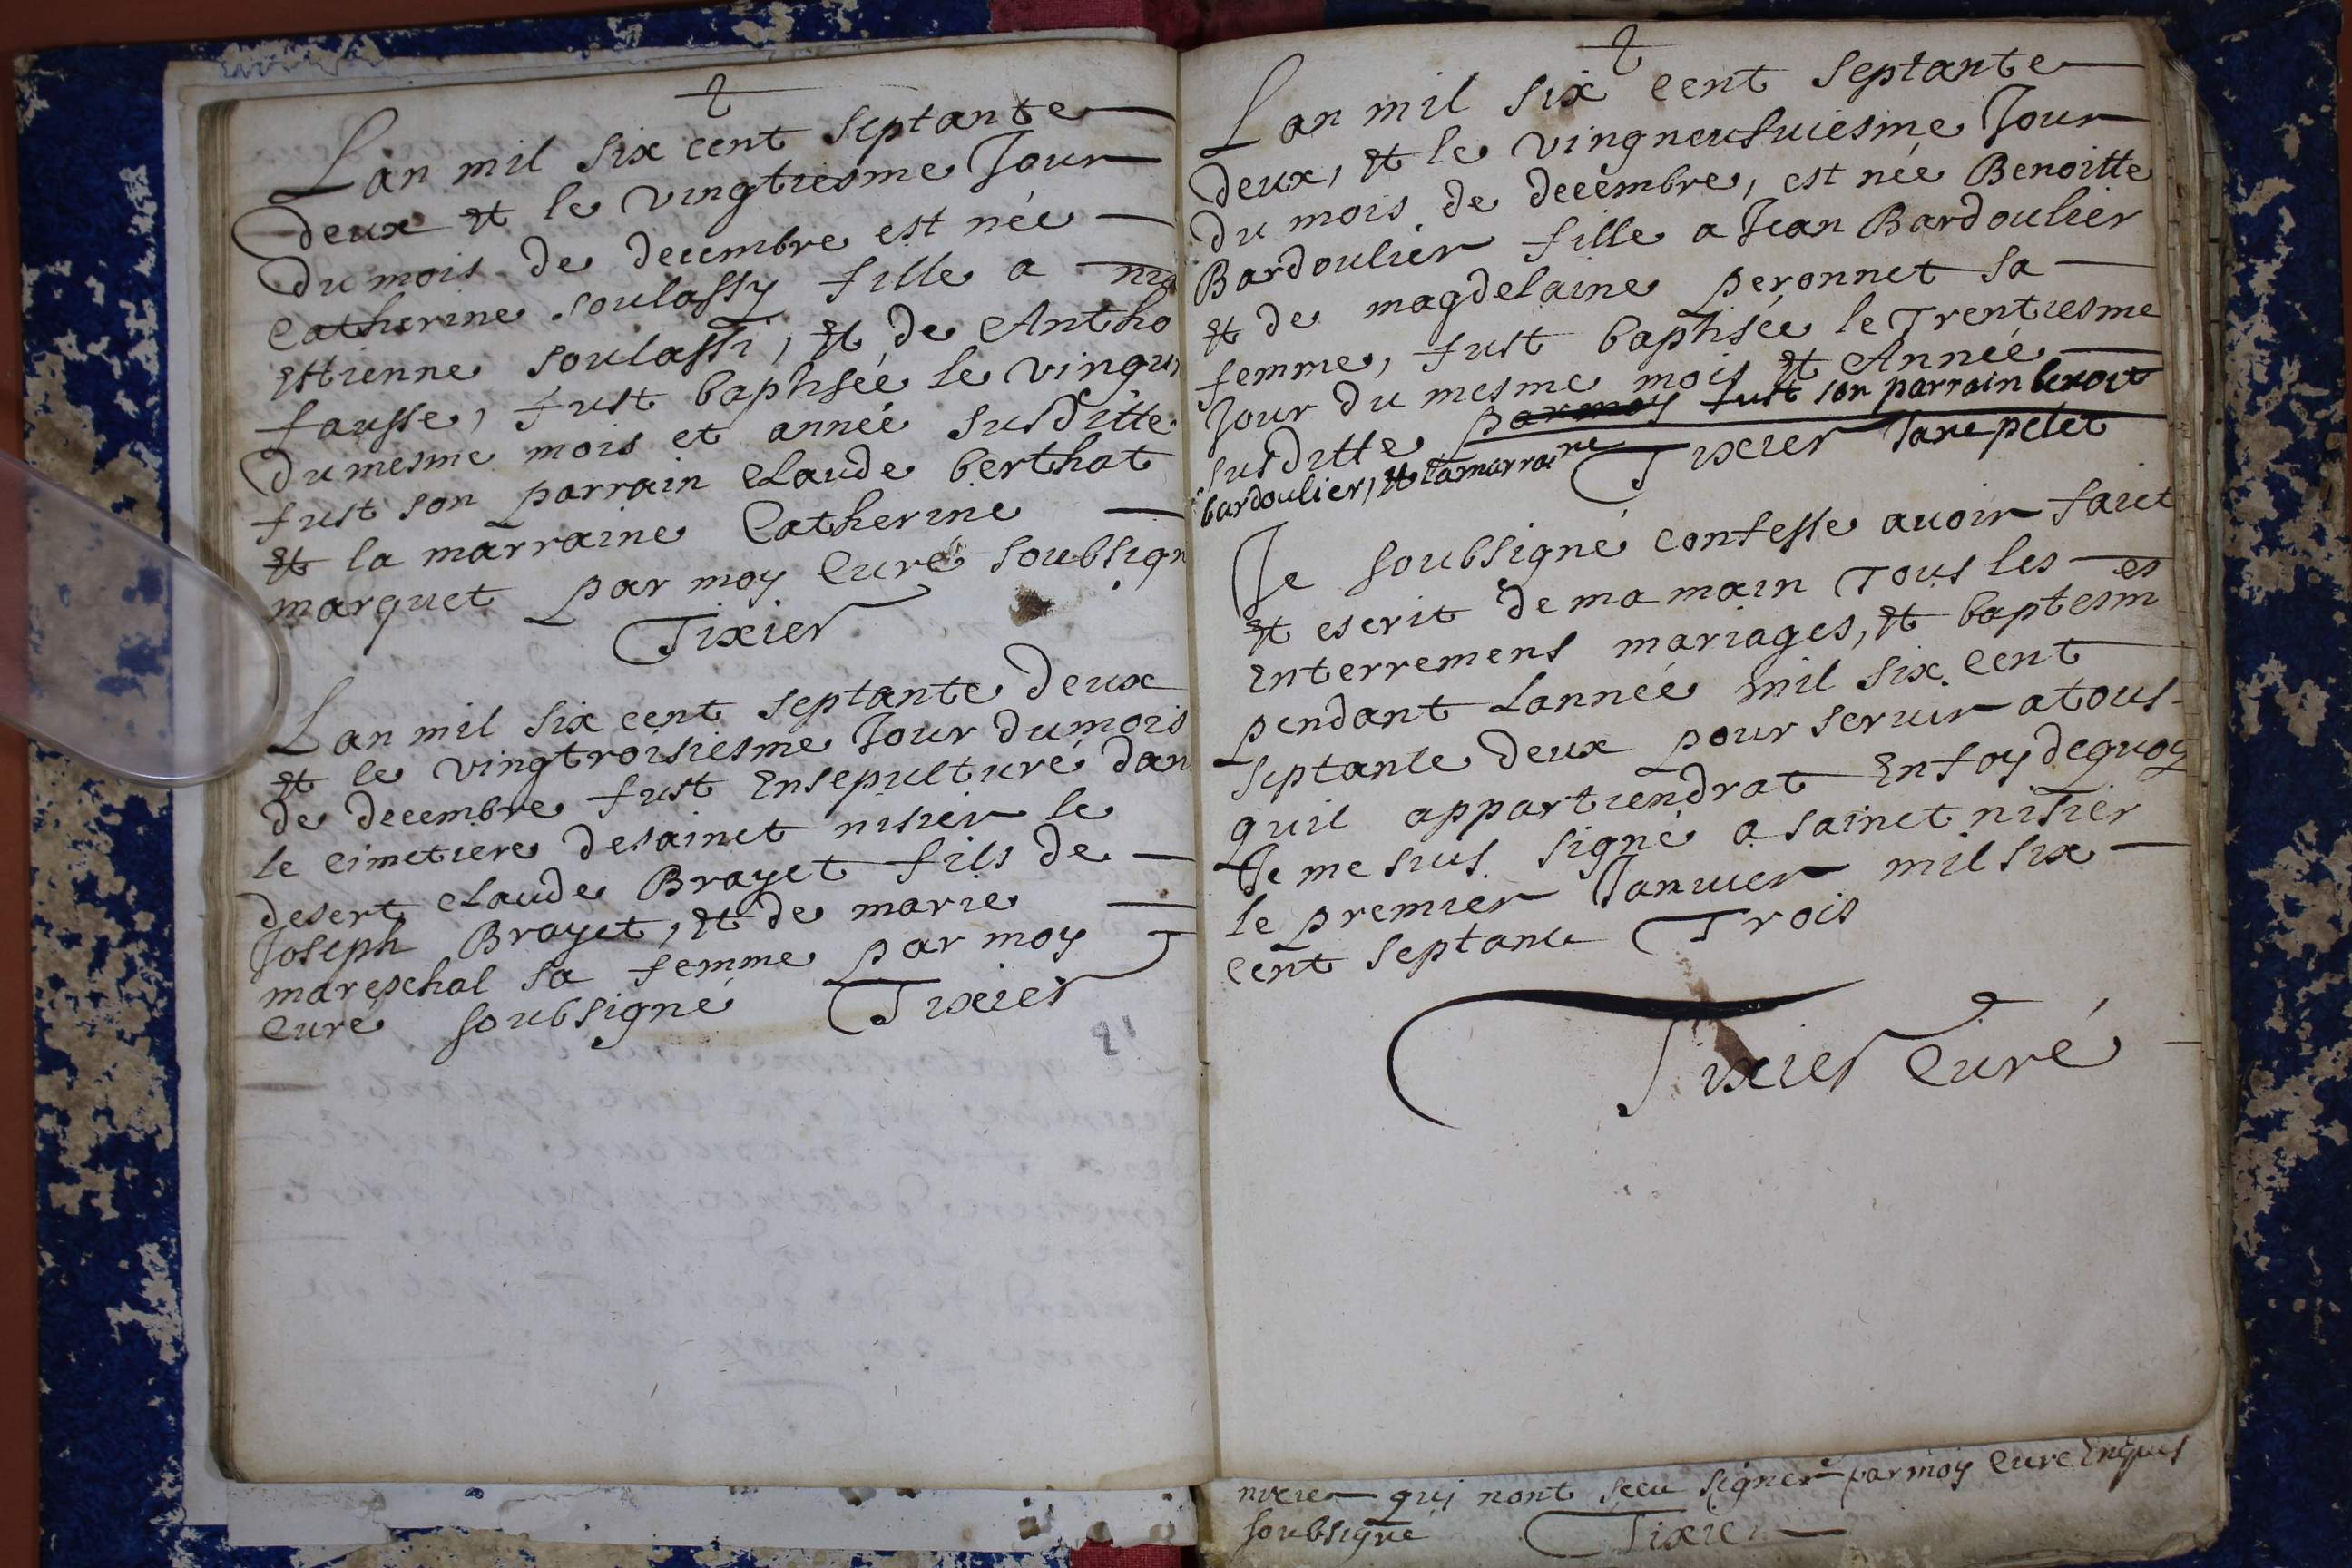 Lan mil six cent septante
deux et le vingtiesme Jour
du mois de decembre est née
Catherine soulassy fille a
Ettienne soulassi, et de Antho
fausse, fust baptisée le vingu
du mesme mois et année susditte
fust son parrain Claude berthat
et la marraine Catherine
marquet par moy Curé soubsign
Tixier
Lan mil six cent septante deux
et le vingtroisiesme Jour du mois
de decembre fust Ensepulturé dan
le cimetiere de sainct nisier le
desert Claude Brayet fils de
Joseph Brayet, et de marie
mareschal sa femme par moy
Curé soubsigné Tixier
21
Lan mil six cent septante
deux, et le vingneufuiesme Jour
du mois de decembre, est née Benoitte
Bardoulier fille a Jean Bardoulier
et de magdelaine peronnet sa
femme, fust baptisée le Trentiesme
Jour du mesme mois et Année
susditte par moy fust son parrain benoit
bardoulier, et la marraine Tixier Jane pelet
Je soubsigné confesse auoir faict
et escrit de ma main Tous les
Enterremens mariages, et baptesmes
pendant Lannée mil six cent
septante deux pour seruir a tous
quil appartiendrat En foy de quoy
Je me suis signé a sainct nisier
le premier Januier mil six
cent septante Trois
Tixier Curé
qui nont sceu signer par moy Cure
soubsigné Tixier